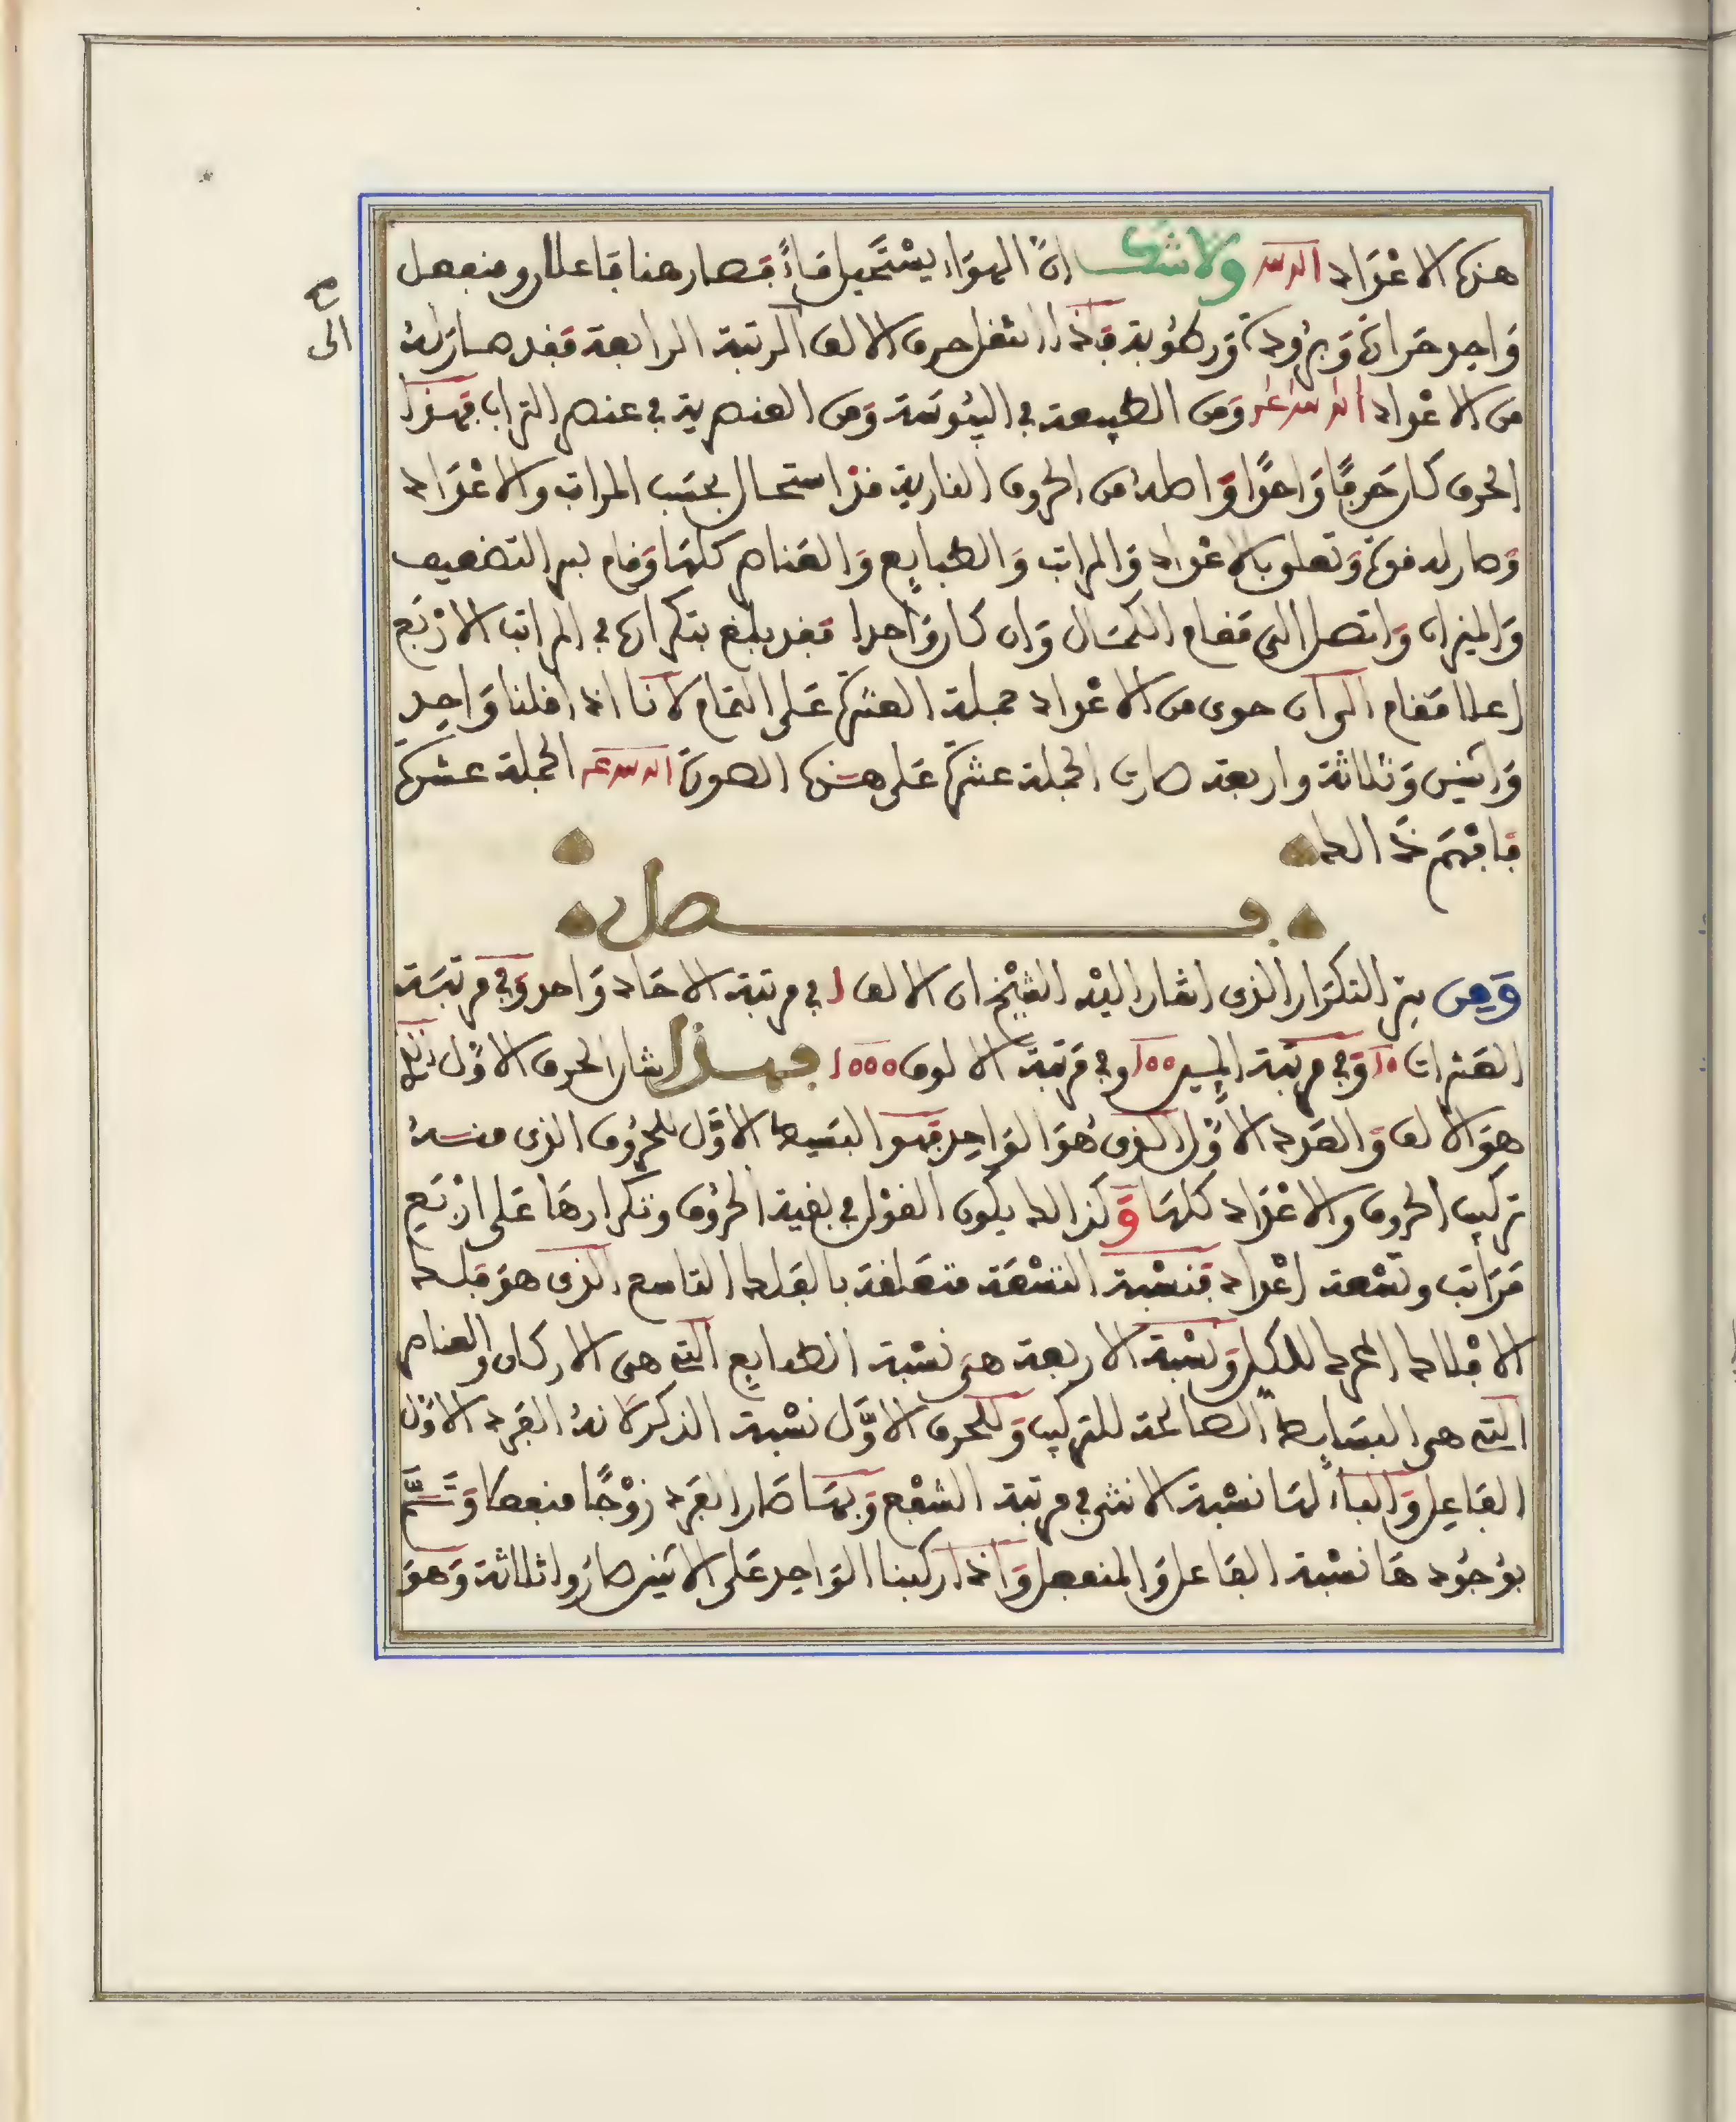 هذه الاعْدَاد ولاشك انّ الهوَاء يسْتَحيل مَاءً فصار هنا فاعلان ومنفعل
وَاحد حَرارة وَبرُودة وَرطُوبة فاذا انتقل حرف الالف الى المرتبة الرابعة فقد صارَ لهُ
من الاعْداد ومن الطبيعة في اليبُوسَة وَمن العنصرية في عنصر التراب فهذا
الحرف كان حَرفًا وَاحدًا وَاصلهُ من الحروف النارية قد استحال بحسَب المراتب والاعْدَاد
وَصار له قوة وَتعلق بالاعْداد وَالمراتب وَالطبايع وَالعَناصر كلهَا وَقام بسر التضعيف
وَالميزان وَاتصل الى مَقام الكمَال وَان كان وَاحدا فقد بلغ بتكراره في المراتب الارْبَع
اعلا مَقام الى ان حوى من الاعْداد جملة العشرة عَلى التمام لانا اذا قلنا وَاحد
وَاثنين وَثلاثة واربعة صارت الجملة عشرة عَلى هذه الصورة الجملة عشرة
فافْهَم ذَلك
فصل
وَمِن سِرّ التكرَار الذى اشار اليْه الشيْخ ان الالف ا في مرتبة الاحَاد وَاحد وَفي مرتبَة
العَشرات ١٠ وَفي مرتبَة المِيين ١٠٠ وفي مَرتبَة الالوف ١٠٠٠ فهذا شان الحرف الاوّل الذى
هوَ الالف وَالعَدد الاوّل الذى هُوَ الوَاحد فهو البَسيط الاوّل للحرُوف الذى منهُ
تركيب الحروف والاعْدَاد كلهَا وَكذالك يكون القوْل في بقية الحرُوف وتكرارهَا عَلى ارْبَع
مَرَاتب وتسْعة اعْداد فنسْبة التسْعَة متعَلقة بالفلك التاسع الذى هوَ فلك
الافْلاك المحرك للكل وَنسْبة الاربعة هي نسْبة الطبايع التي هى الاركان والعناصر
التي هى البسَايط الصَالحة للتركيب وَللحرف الاوَّل نسْبة الذكر لانهُ الفَرد الاوّل
الفَاعِل وَالباء لهَا نسْبة الانثى في مرتبة الشفْع وَبهَا صَار الفَرد زوْجًا منفعلا وَتَمَّ
بوُجُودهَا نسْبة الفَاعل وَالمنفعل وَاذا ركبنا الوَاحد عَلى الاثنين صارُوا ثلاثة وَهوَ
الى